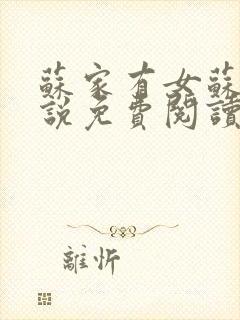 蘇家有女蘇
說免費閱讀
離忻